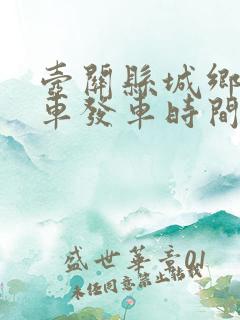 壺關縣城鄉
車發車時間
盛世華章01
未任同意禁止轉載